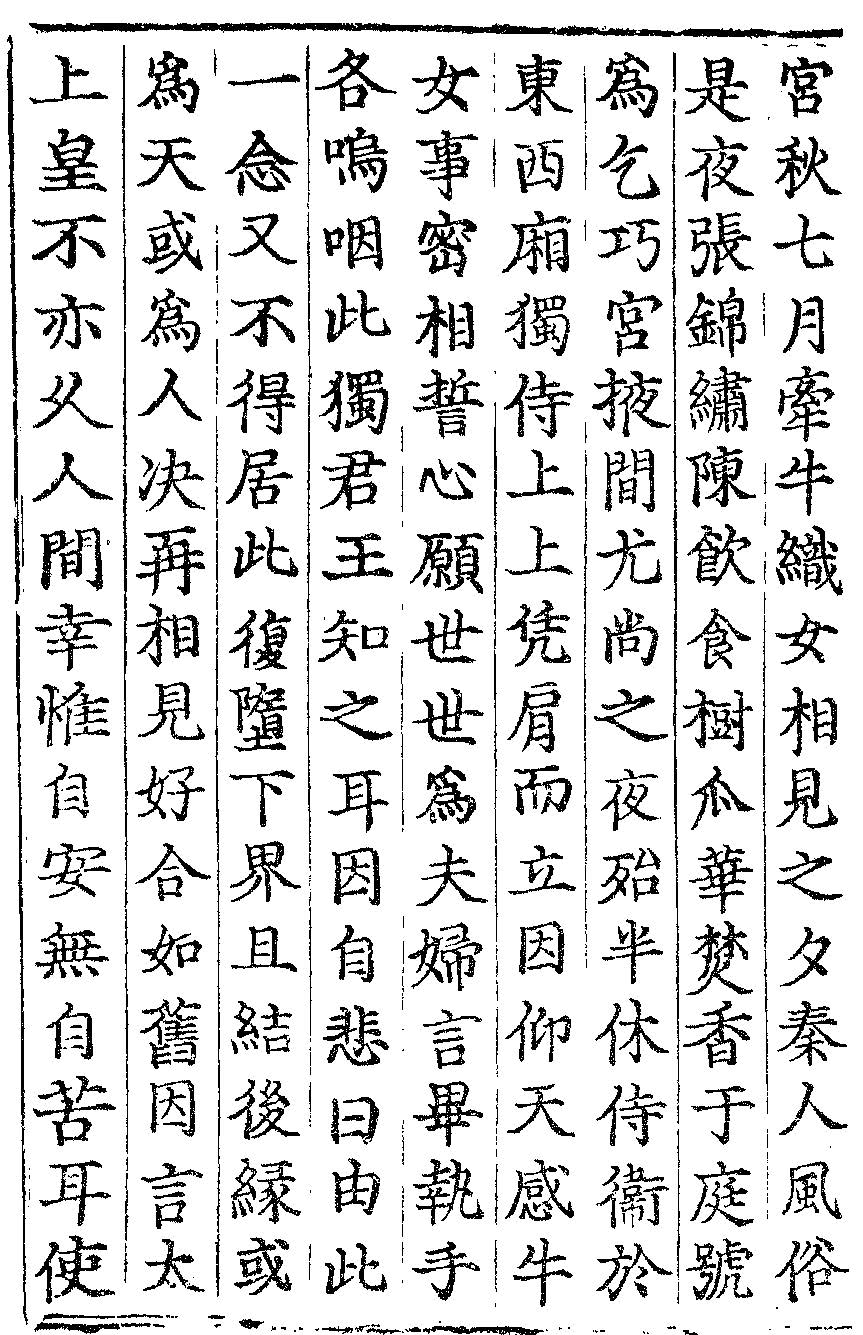 宮秋七月牽牛織女相見之夕秦人風俗
是夜張錦繡陳飲食樹瓜華焚香于庭號
爲乞巧宮掖間尤尚之夜殆半休侍衞於
東西廂獨侍上上凭肩而立因仰天感牛
女事密相誓心願世世爲夫婦言畢執手
各嗚咽此獨君王知之耳因自悲曰由此
一念又不得居此復墮下界且結後緣或
爲天或爲人决再相見好合如舊因言太
上皇不亦乆人間幸惟自安無自苦耳使